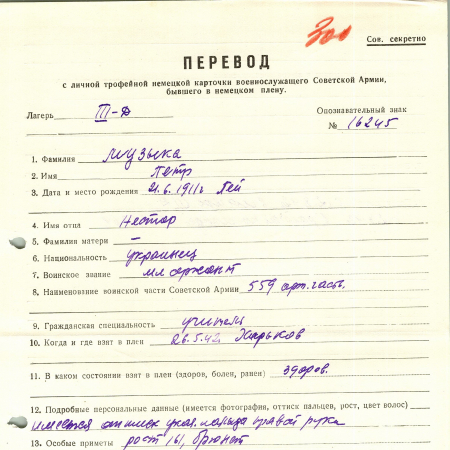 Сов. секретно
ПЕРЕВОД
с личной трофейной немецкой карточки военнослужащего Советской Армии,
бывшего в немецком плену.
Лагерь III-Д
Опознавательный знак
№ 16245
1. Фамилия Музыка
2. Имя Петр
3. Дата и место рождения 21.6.1911г
4. Имя отца Нестор
5. Фамилия матери –
6. Национальность украинец
7. Воинское звание мл сержант
8. Наименование воинской части Советской Армии 559 арт. часть.
9. Гражданская специальность учитель
10. Когда и где взят в плен 26.5.42 Харьков
11. В каком состоянии взят в плен (здоров, болен, ранен) здоров.
12. Подробные персональные данные (имеется фотография, оттиск пальцев, рост, цвет волос)
имеется оттиск указ. пальца правой руки
13. Особые приметы рост 161, брюнет